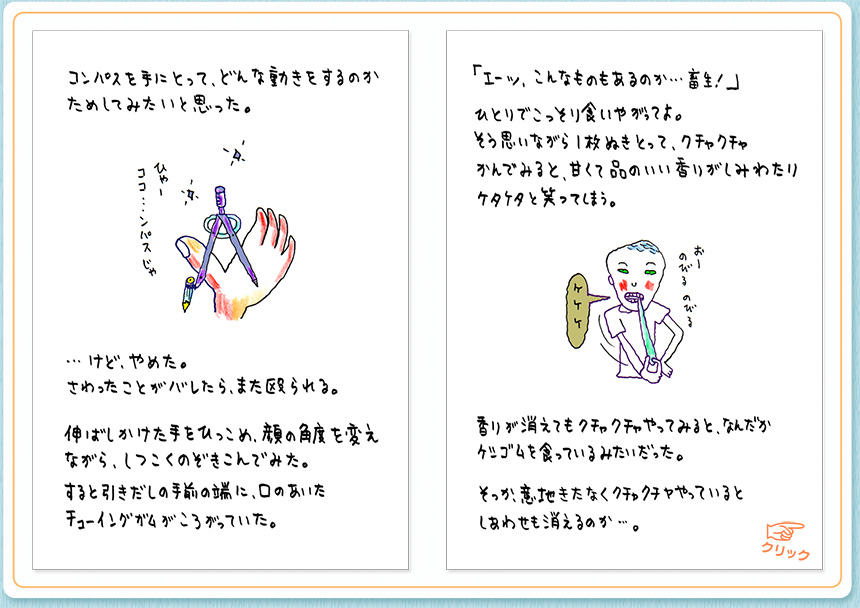 コンパスを手にとって、どんな動きをするのか
ためしてみたいと思った。
ひゃー
ココ…ンパスじゃ
…けど、やめた。
さわったことがバレたら、また殴られる。
伸ばしかけた手をひっこめ、顔の角度を変え
ながら、しつこくのぞきこんでみた。
すると引きだしの手前の端に、口のあいた
チューイングガムがころがっていた。
「エーッ、こんなものもあるのか…畜生!」
ひとりでこっそり食いやがってよ。
そう思いながら1枚ぬきとって、クチャクチャ
かんでみると、甘くて品のいい香りがしみわたり
ケタケタと笑ってしまう。
おー
のびる のびる
ケケケ
香りが消えてもクチャクチャやってみると、なんだか
ケシゴムを食っているみたいだった。
そっか、意地きたなくクチャクチャやっていると
しあわせも消えるのか…。
クリック